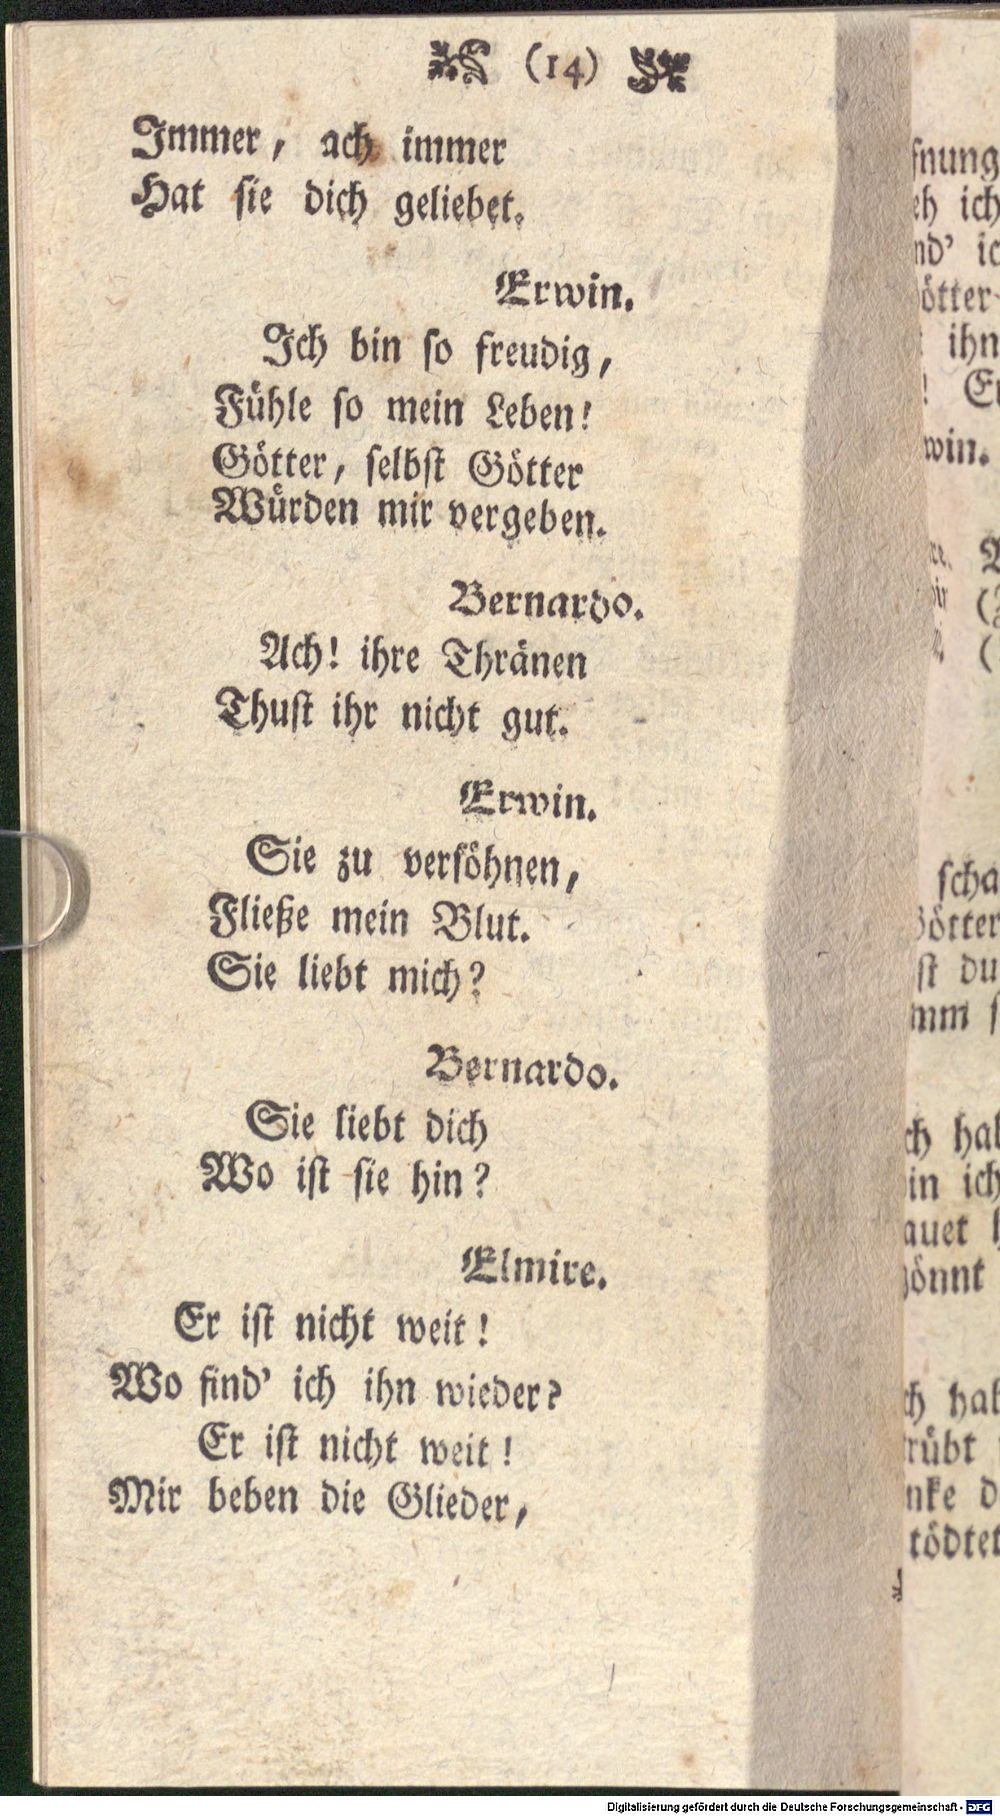 (14)
Immer, ach immer
Hat sie dich geliebet.
Erwin.
Ich bin so freudig,
Fühle so mein Leben!
Götter, selbst Götter
Würden mir vergeben.
Bernardo.
Ach! ihre Thränen
Thust ihr nicht gut.
Erwin.
Sie zu versöhnen,
Fließe mein Blut.
Sie liebt mich?
Bernardo.
Sie liebt dich
Wo ist sie hin?
Elmire.
Er ist nicht weit!
Wo find' ich ihn wieder?
Er ist nicht weit!
Mir beben die Glieder,
ich
ihn
win.
scha
du
hal
in ich
auet
hal
Digitalisierung gefördert durch die Deutsche Forschungsgemeinschaft - DFG